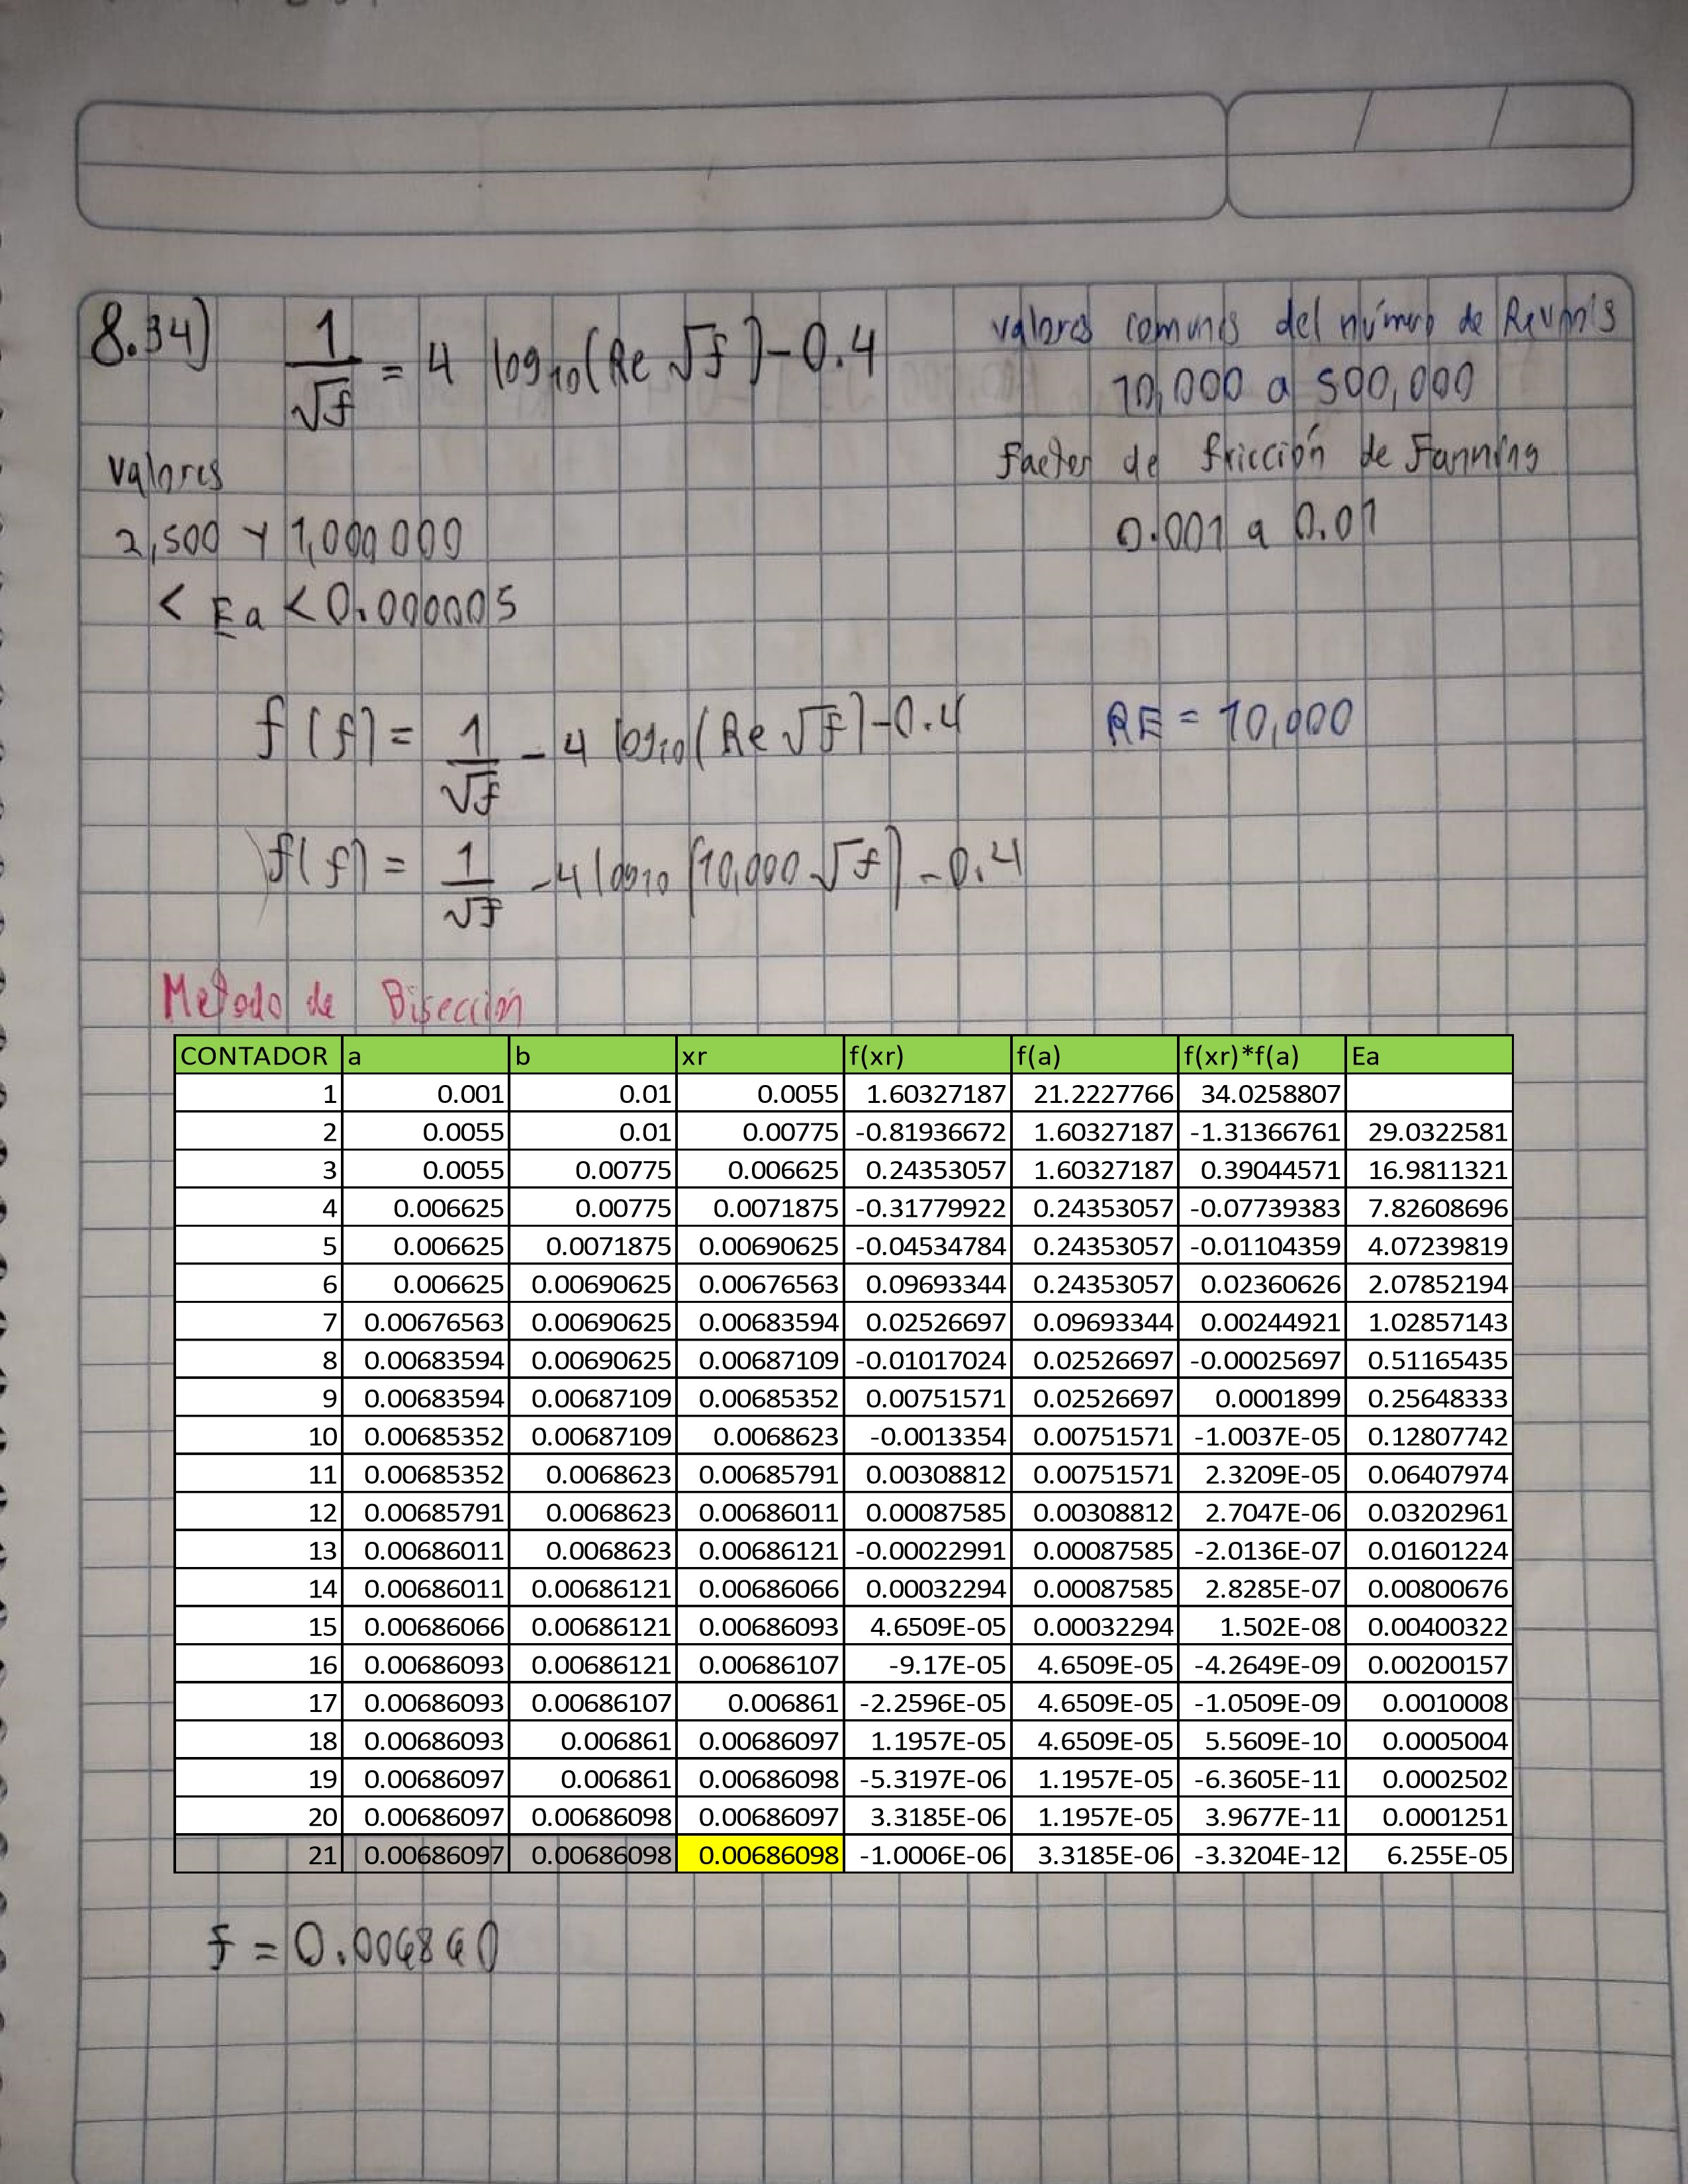 8.34) 1/√f = 4 log10(Re √f) - 0.4
valores comunes del número de Reynols
10,000 a 500,000
valores
factor de fricción de Fanning
2,500 y 1,000 000
0.001 a 0.01
< Ea < 0.000005
f(f) = 1/√f - 4 log10(Re √f) - 0.4
RE = 10,000
f(f) = 1/√f - 4 log10(10,000 √f) - 0.4
Metodo de Bisección
CONTADOR a b xr f(xr) f(a) f(xr)*f(a) Ea
1 0.001 0.01 0.0055 1.60327187 21.2227766 34.0258807
2 0.0055 0.01 0.00775 -0.81936672 1.60327187 -1.31366761 29.0322581
3 0.0055 0.00775 0.006625 0.24353057 1.60327187 0.39044571 16.9811321
4 0.006625 0.00775 0.0071875 -0.31779922 0.24353057 -0.07739383 7.82608696
5 0.006625 0.0071875 0.00690625 -0.04534784 0.24353057 -0.01104359 4.07239819
6 0.006625 0.00690625 0.00676563 0.09693344 0.24353057 0.02360626 2.07852194
7 0.00676563 0.00690625 0.00683594 0.02526697 0.09693344 0.00244921 1.02857143
8 0.00683594 0.00690625 0.00687109 -0.01017024 0.02526697 -0.00025697 0.51165435
9 0.00683594 0.00687109 0.00685352 0.00751571 0.02526697 0.0001899 0.25648333
10 0.00685352 0.00687109 0.0068623 -0.0013354 0.00751571 -1.0037E-05 0.12807742
11 0.00685352 0.0068623 0.00685791 0.00308812 0.00751571 2.3209E-05 0.06407974
12 0.00685791 0.0068623 0.00686011 0.00087585 0.00308812 2.7047E-06 0.03202961
13 0.00686011 0.0068623 0.00686121 -0.00022991 0.00087585 -2.0136E-07 0.01601224
14 0.00686011 0.00686121 0.00686066 0.00032294 0.00087585 2.8285E-07 0.00800676
15 0.00686066 0.00686121 0.00686093 4.6509E-05 0.00032294 1.502E-08 0.00400322
16 0.00686093 0.00686121 0.00686107 -9.17E-05 4.6509E-05 -4.2649E-09 0.00200157
17 0.00686093 0.00686107 0.006861 -2.2596E-05 4.6509E-05 -1.0509E-09 0.0010008
18 0.00686093 0.006861 0.00686097 1.1957E-05 4.6509E-05 5.5609E-10 0.0005004
19 0.00686097 0.006861 0.00686098 -5.3197E-06 1.1957E-05 -6.3605E-11 0.0002502
20 0.00686097 0.00686098 0.00686097 3.3185E-06 1.1957E-05 3.9677E-11 0.0001251
21 0.00686097 0.00686098 0.00686098 -1.0006E-06 3.3185E-06 -3.3204E-12 6.255E-05
f = 0.006860